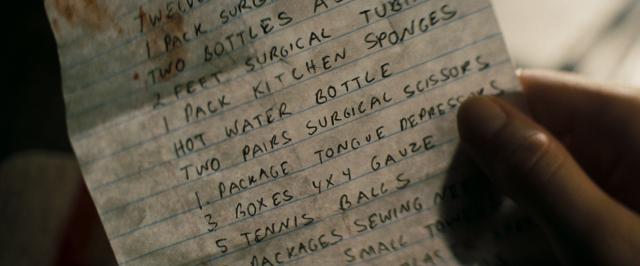 TWELVE
1 PACK SURG
TWO BOTTLES
2 FEET SURGICAL TUBI
1 PACK KITCHEN SPONGES
HOT WATER BOTTLE
TWO PAIRS SURGICAL SCISSORS
1 PACKAGE TONGUE DEPRESSORS
3 BOXES 4X4 GAUZE
5 TENNIS BALLS
PACKAGES SEWING NE
SMALL TOW